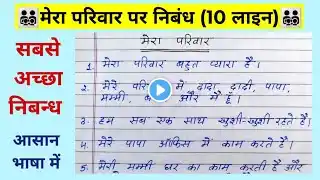 मेरा परिवार पर निबंध (10 लाइन)
सबसे
अच्छा
निबन्ध
आसान
भाषा में
मेरा परिवार
1. मेरा परिवार बहुत प्यारा है।
2. मेरे में दादा, दादी, पापा,
मम्मी, और मैं हूँ।
3. हम सब एक साथ खुशी-खुशी रहते हैं।
4. मेरे पापा ऑफिस में काम करते हैं।
5. मेरी मम्मी घर का काम करती हैं और